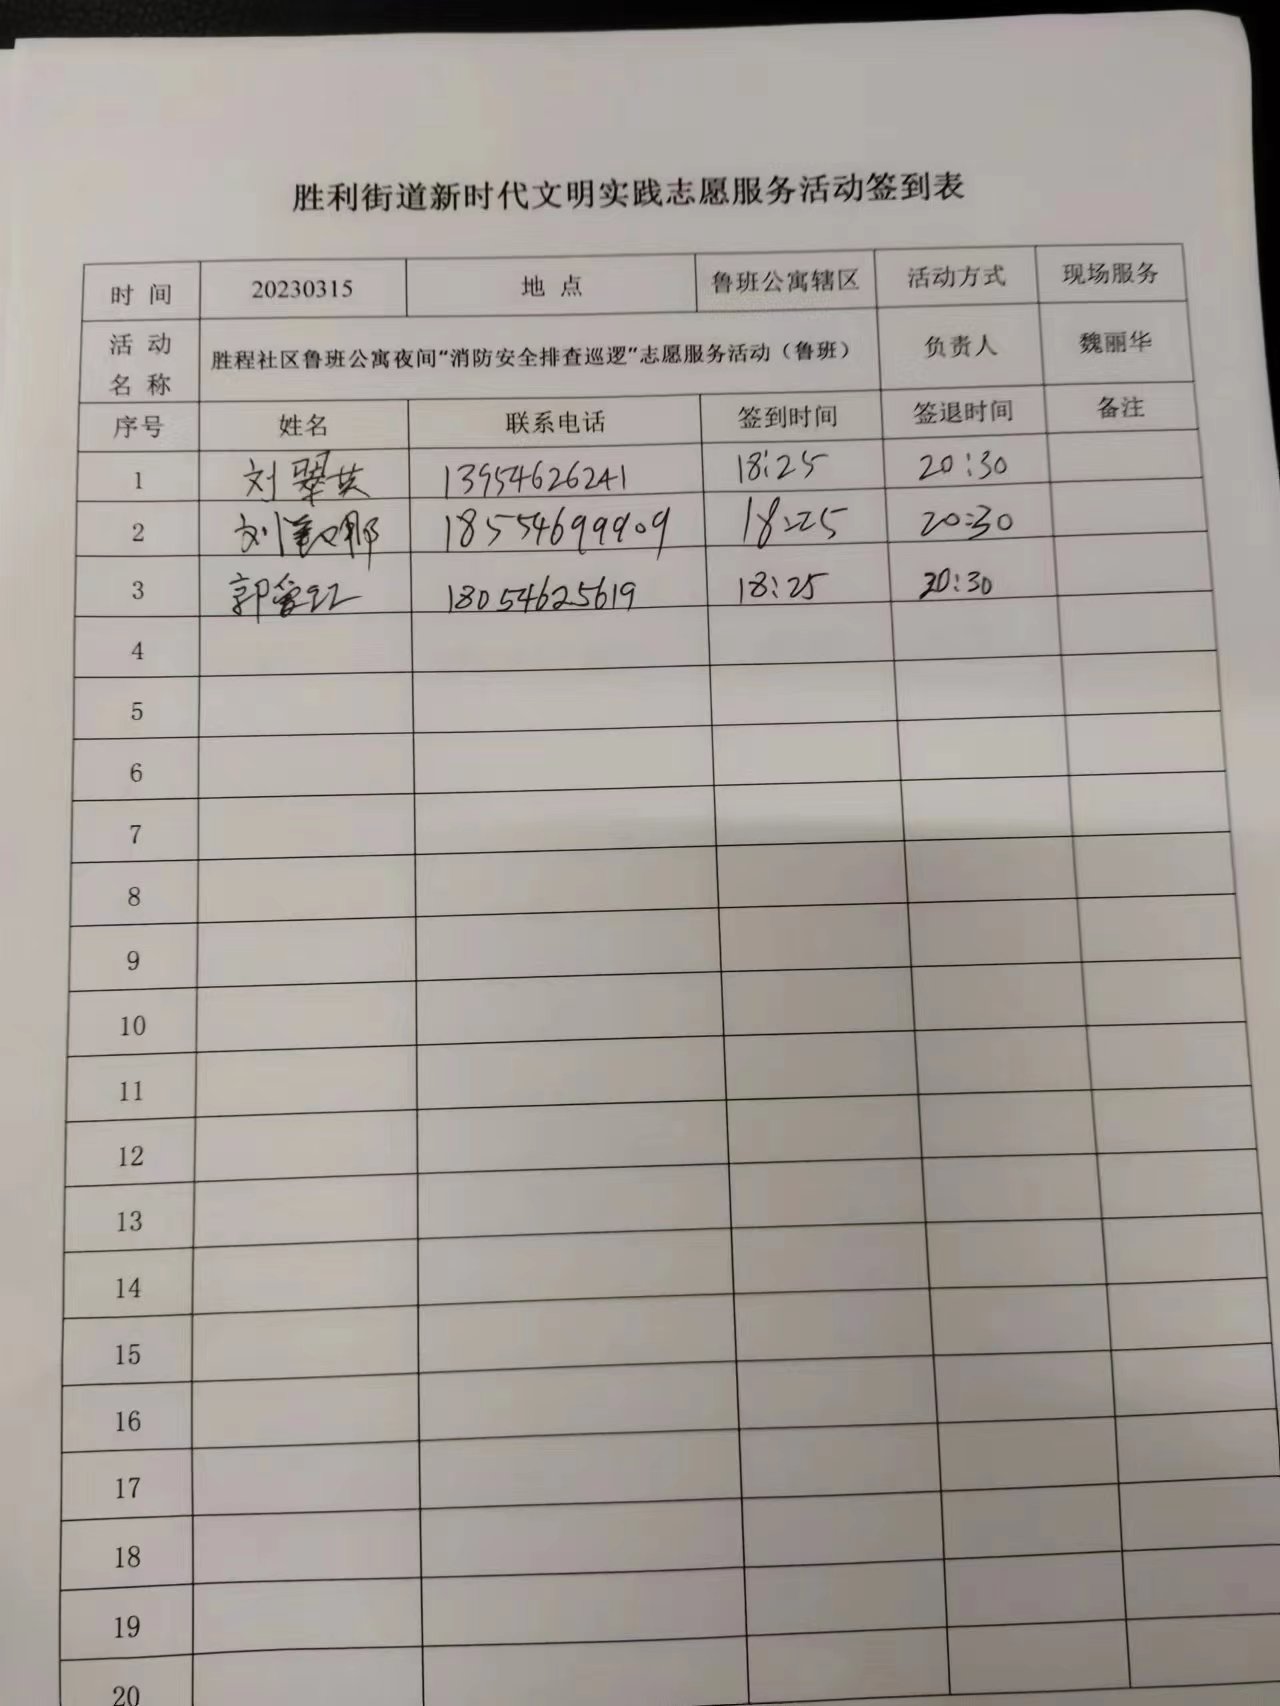 胜利街道新时代文明实践志愿服务活动签到表
时 间 20230315 地 点 鲁班公寓辖区 活动方式 现场服务
活 动 名 称 胜程社区鲁班公寓夜间“消防安全排查巡逻”志愿服务活动（鲁班） 负责人 魏丽华
序号 姓名 联系电话 签到时间 签退时间 备注
1 刘翠英 13954626241 18:25 20:30
2 刘 娜 18554699909 18:25 20:30
3 郭 红 18054625619 18:25 20:30
4
5
6
7
8
9
10
11
12
13
14
15
16
17
18
19
20